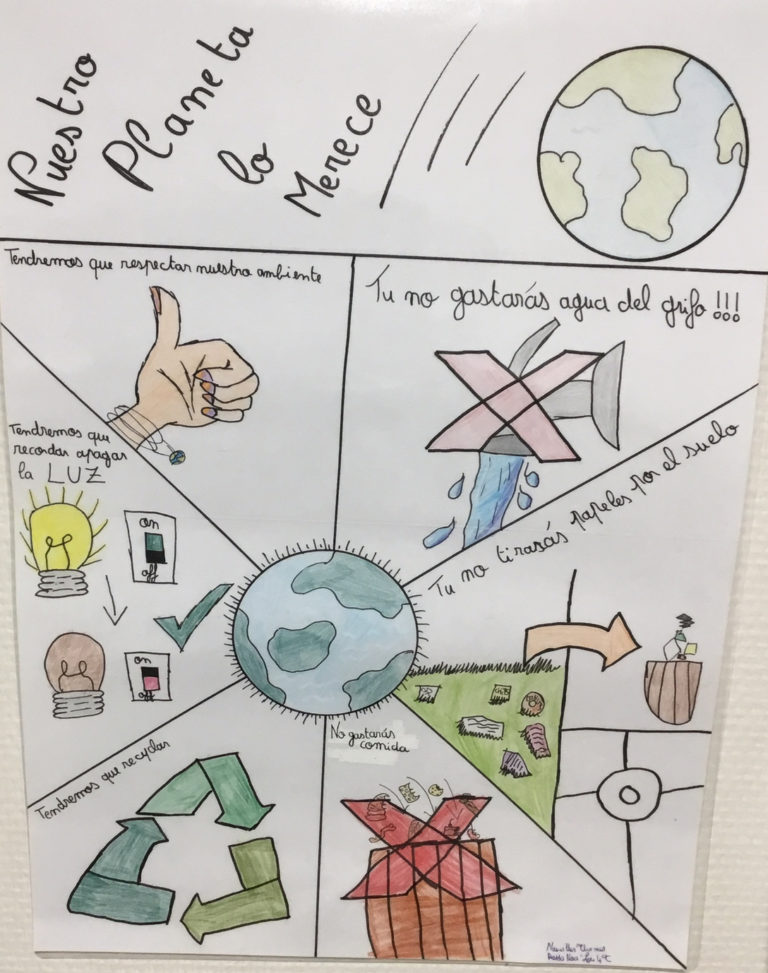 Nuestro
Planeta
lo
Merece
Tendremos que respectar nuestro ambiente
Tu no gastarás agua del grifo !!!
Tendremos que
recordar apagar
la LUZ
on
off
on
off
Tu no tirasás papeles por el suelo
Tendremos que recyclar
No gastarás
comida